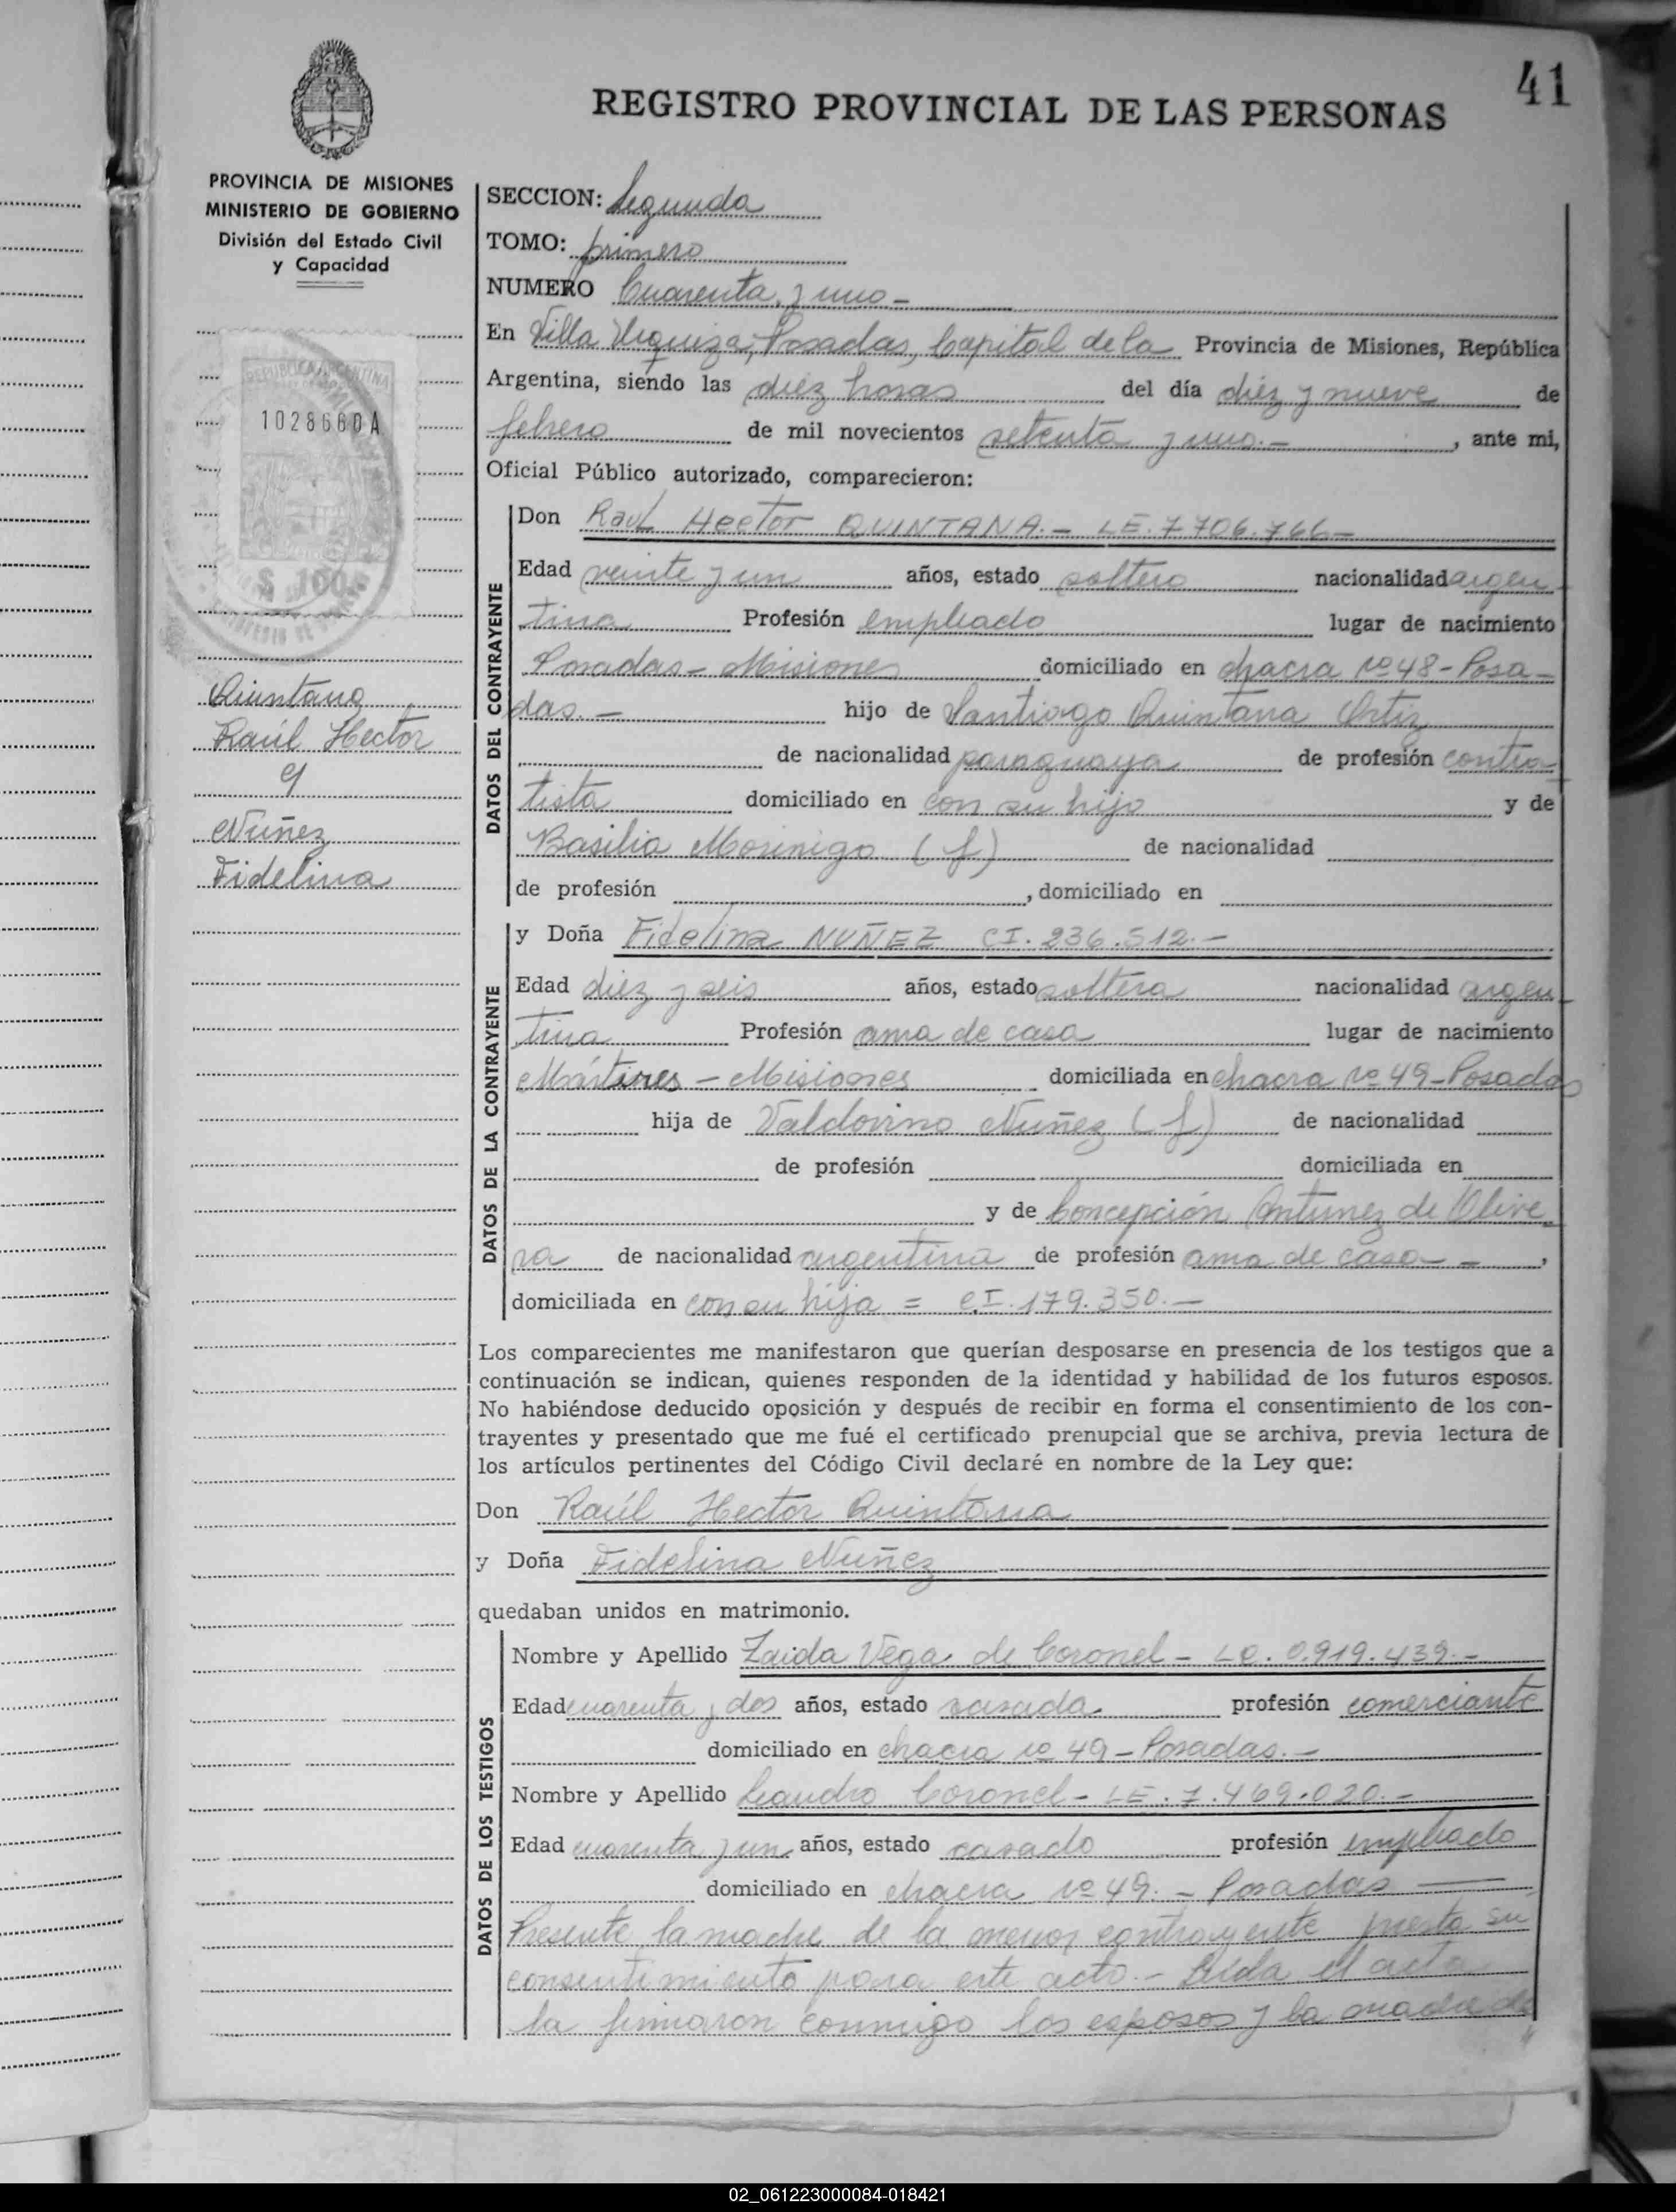 41
REGISTRO PROVINCIAL DE LAS PERSONAS
PROVINCIA DE MISIONES
MINISTERIO DE GOBIERNO
División del Estado Civil
y Capacidad
REPUBLICA ARGENTINA
1028660A
$ 100
Quintana
Raúl Hector
y
Nuñez
Fidelina
SECCION: Segunda
TOMO: primero
NUMERO Cuarenta y uno -
En Villa Urquiza, Posadas, Capital de la Provincia de Misiones, República
Argentina, siendo las diez horas del día diez y nueve de
febrero de mil novecientos setenta y uno.-, ante mi,
Oficial Público autorizado, comparecieron:
DATOS DEL CONTRAYENTE
Don Raul Hector QUINTANA.- LE. 7.706.766.-
Edad veinte y un años, estado soltero nacionalidad argen
tina Profesión empleado lugar de nacimiento
Posadas - Misiones domiciliado en chacra nº 48 - Posa-
das.- hijo de Santiago Quintana Ortiz
de nacionalidad paraguaya de profesión contra
tista domiciliado en con su hijo y de
Basilia Morinigo (f) de nacionalidad
de profesión , domiciliado en
DATOS DE LA CONTRAYENTE
y Doña Fidelina NUÑEZ CI. 236.512.-
Edad diez y seis años, estado soltera nacionalidad argen
tina Profesión ama de casa lugar de nacimiento
Mártires - Misiones domiciliada en chacra nº 49 - Posadas
hija de Valdovino Nuñez (f) de nacionalidad
de profesión domiciliada en
y de Concepción Antunez de Olive
ra de nacionalidad argentina de profesión ama de casa - - ,
domiciliada en con su hija = C.I. 179.350.-
Los comparecientes me manifestaron que querían desposarse en presencia de los testigos que a
continuación se indican, quienes responden de la identidad y habilidad de los futuros esposos.
No habiéndose deducido oposición y después de recibir en forma el consentimiento de los con-
trayentes y presentado que me fué el certificado prenupcial que se archiva, previa lectura de
los artículos pertinentes del Código Civil declaré en nombre de la Ley que:
Don Raúl Hector Quintana
y Doña Fidelina Nuñez
quedaban unidos en matrimonio.
DATOS DE LOS TESTIGOS
Nombre y Apellido Zaida Vega de Coronel - LC. 0.919.439.-
Edad cuarenta y dos años, estado casada profesión comerciante
domiciliado en chacra nº 49 - Posadas.-
Nombre y Apellido Leandro Coronel - LE. 7.469.020.-
Edad cuarenta y un años, estado casado profesión empleado
domiciliado en chacra nº 49. - Posadas
Presente la madre de la menor contrayente presta su
consentimiento para este acto.- Leida el acta
la firmaron conmigo los esposos y la madre de
02_061223000084-018421